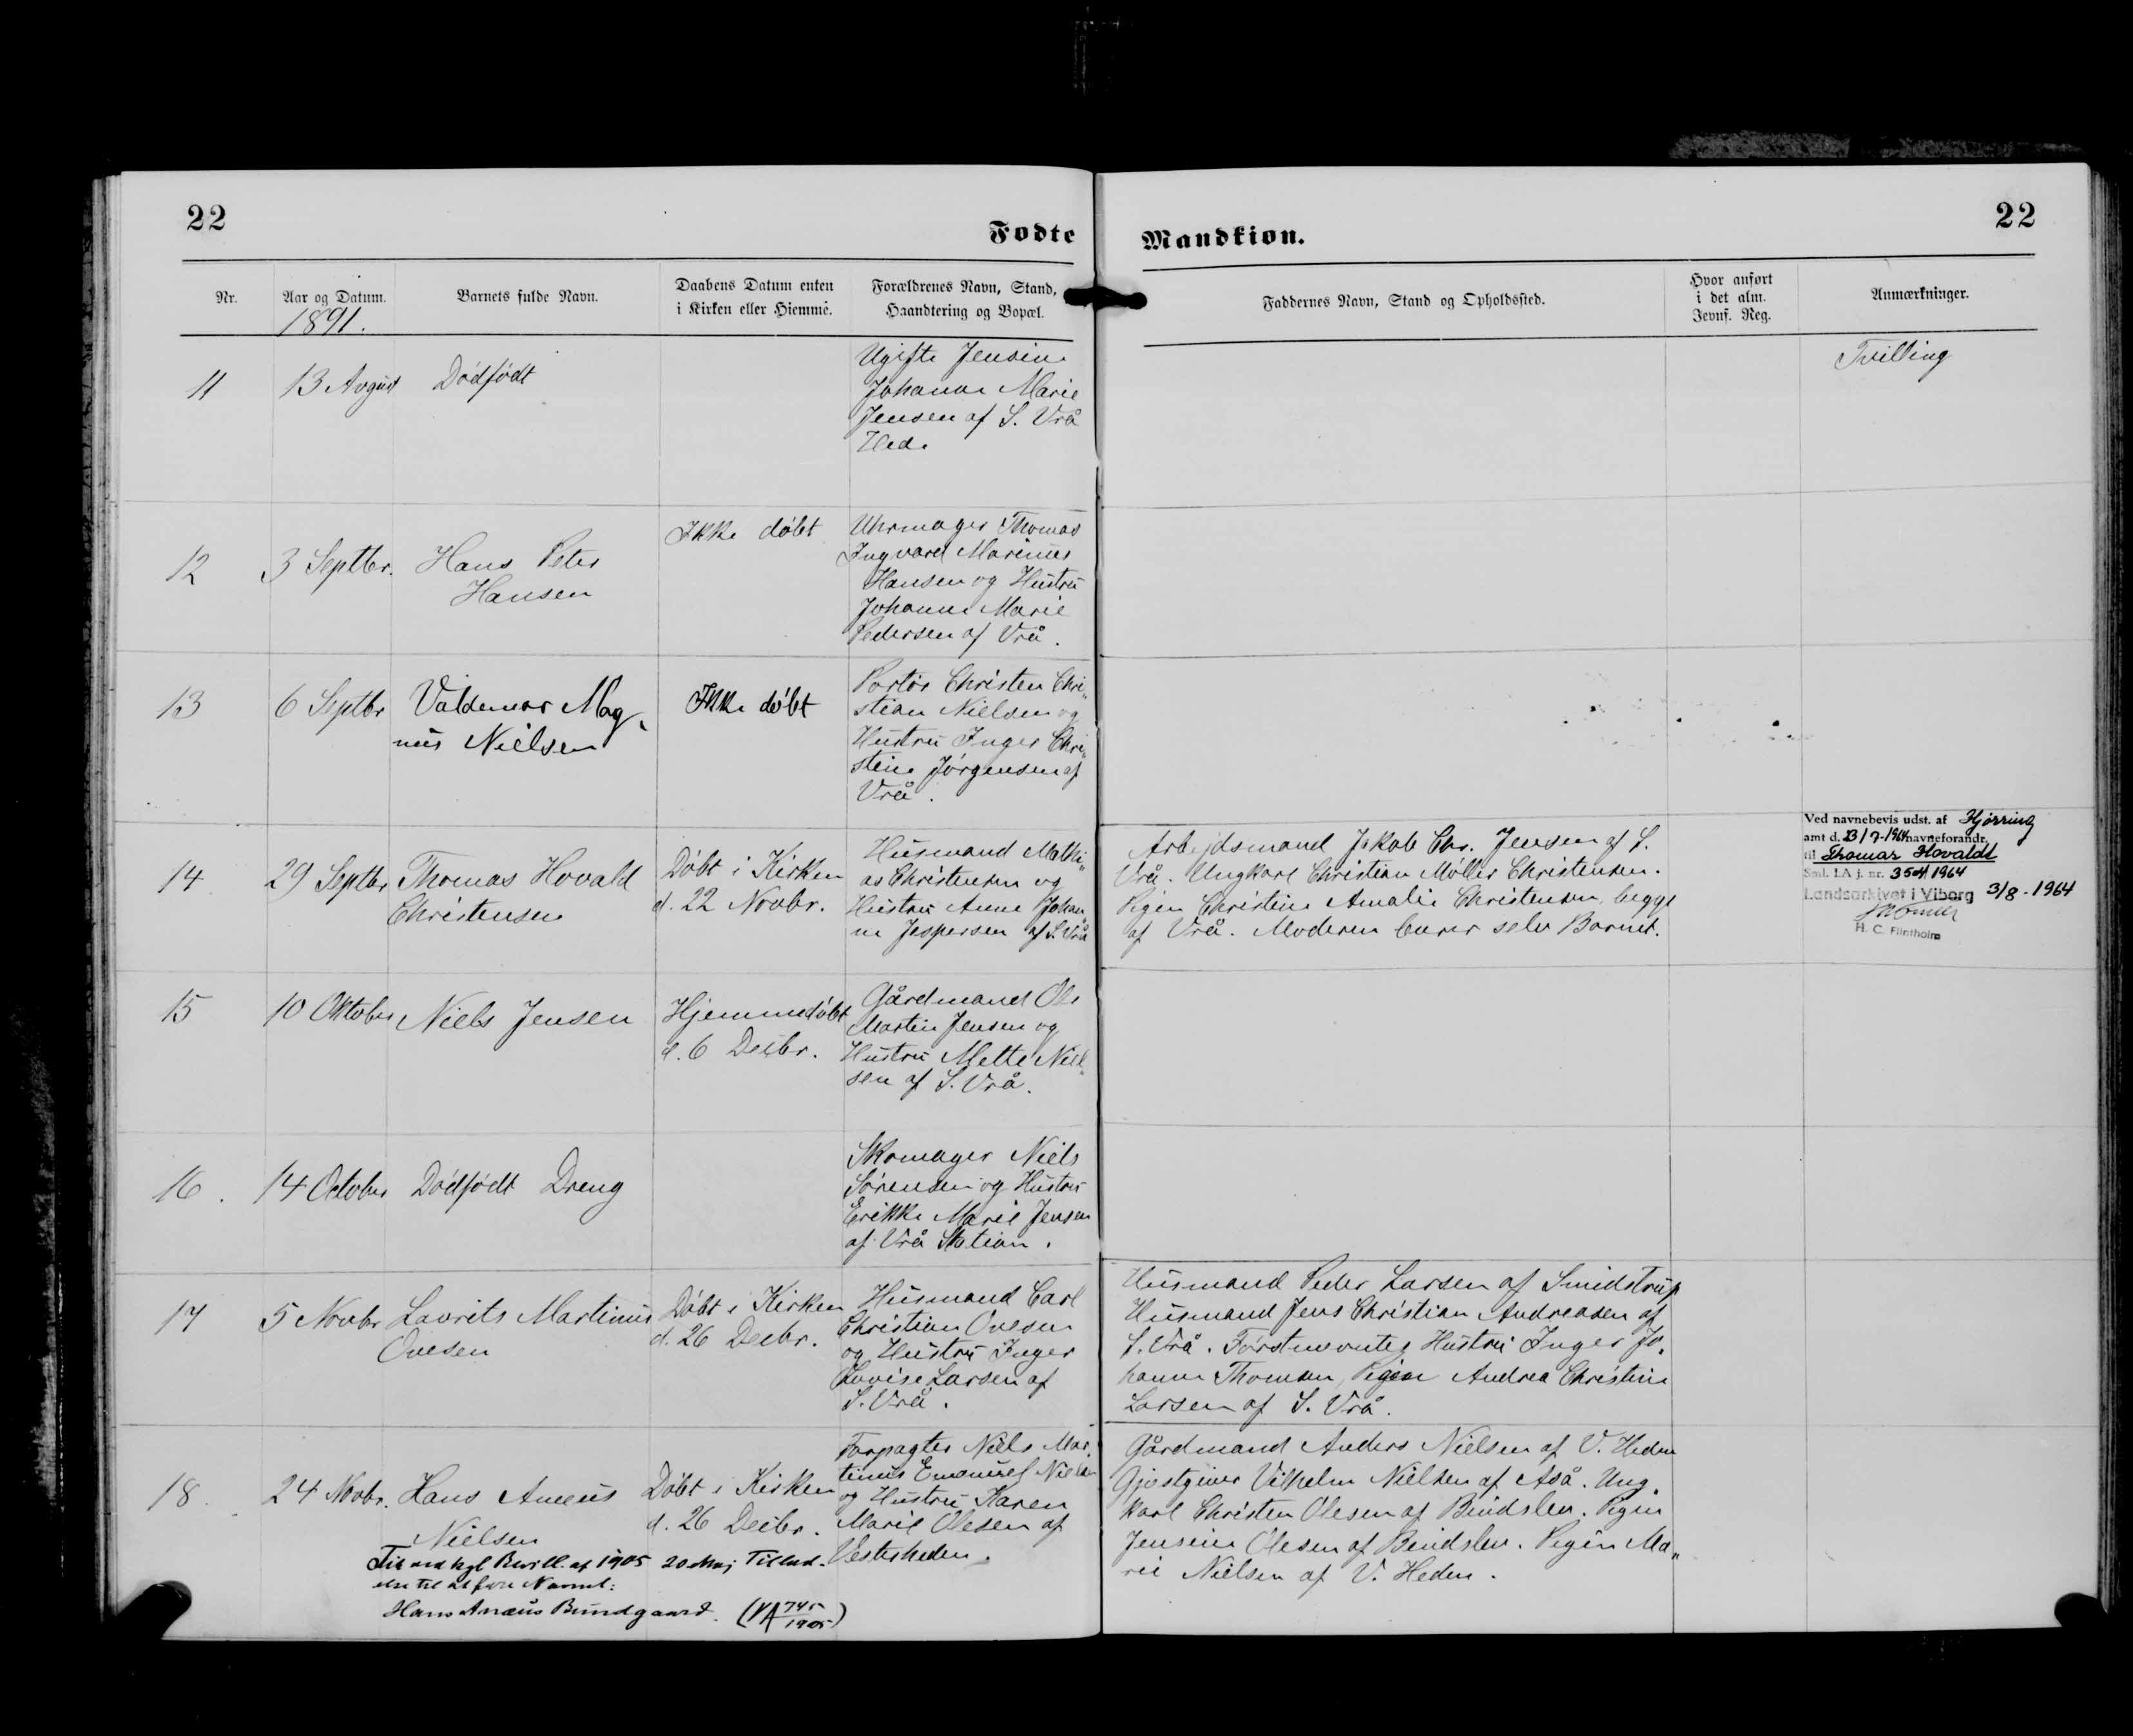 22
Fodte
Mandkion.
22
Nr.
Aar og Datum.
1891.
Barnets fulde Navn.
Daabens Datum enten
i Kirken eller Hiemme.
Forældrenes Navn, Stand,
Haandtering og Bopæl.
Faddernes Navn, Stand og Opholdssted.
Hvor anført
i det alm.
Jevnf. Reg.
Anmærkninger.
11
13 August
Dødfødt
Ugifte Jensine
Johanne Marie
Jensen af S. Vrå
Hede
Tvilling
12
3 Septbr.
Hans Peter
Hansen
Ikke døbt
Uhrmager Thomas
Ingvard Marinus
Hansen og Hustru
Johanne Marie
Pedersen af Vrå.
13
6 Septbr
Valdemar Mag-
nus Nielsen
Ikke døbt
Portør Christen Chri„
stian Nielsen og
Hustru Inger Chri„
stine Jørgensen af
Vrå.
14
29 Septbr
Thomas Hovald
Christensen
Døbt i Kirken
d. 22 Novbr.
Husmand Mathi„
as Christensen og
Hustru Anne Johan„
ne Jespersen af S. Vrå
Arbejdsmand Jakob Chr. Jensen af S.
Vrå. Ungkarl Christian Møller Christensen.
Pigen Christine Amalie Christensen, begge
af Vrå. Moderen barer selv Barnet.
Ved navnebevis udst. af Hjørring
amt d. 23/7-1964 navneforandr.
til Thomas Hovaldt
Sml. LA j. nr. 3504/1964
Landsarkivet i Viborg 3/8-1964
H. C. Flintholm
15
10 Oktober
Niels Jensen
Hjemmedøbt
d. 6 Decbr.
Gårdmand Ole
Martin Jensen og
Hustru Mette Niel„
sen af S. Vrå.
16.
14 October
Dødfødt Dreng
Skomager Niels
Sørensen og Hustru
Erikke Marie Jensen
af Vrå Station.
17
5 Novbr
Lavrits Martinus
Ovesen
Døbt i Kirken
d. 26 Decbr.
Husmand Carl
Christian Ovesen
og Hustru Inger
Lovise Larsen af
S. Vrå.
Husmand Peder Larsen af Smidstrup
Husmand Jens Christian Andreasen af
S. Vrå. Førstnævntes Hustru Inger Jo„
hanne Thomsen, Pigen Andrea Christine
Larsen af S. Vrå.
18.
24 Novbr.
Hans Anæus
Nielsen
Døbt i Kirken
d. 26 Decbr.
Forpagter Niels Mar„
tinus Emanuel Nielsen
og Hustru Karen
Marie Olesen af
Vesterheden.
Gårdmand Anders Nielsen af V. Heden
Gjæstgiver Vilhelm Nielsen af Aså. Ung„
karl Christen Olesen af Bindslev. Pigen
Jensine Olesen af Bindslev. Pigen Ma„
rie Nielsen af V. Heden.
Fik ved kgl Bevill. af 1905 20 Maj Tillad-
else til at føre Navnet:
Hans Anæus Bundgaard. (VA 745/1905)